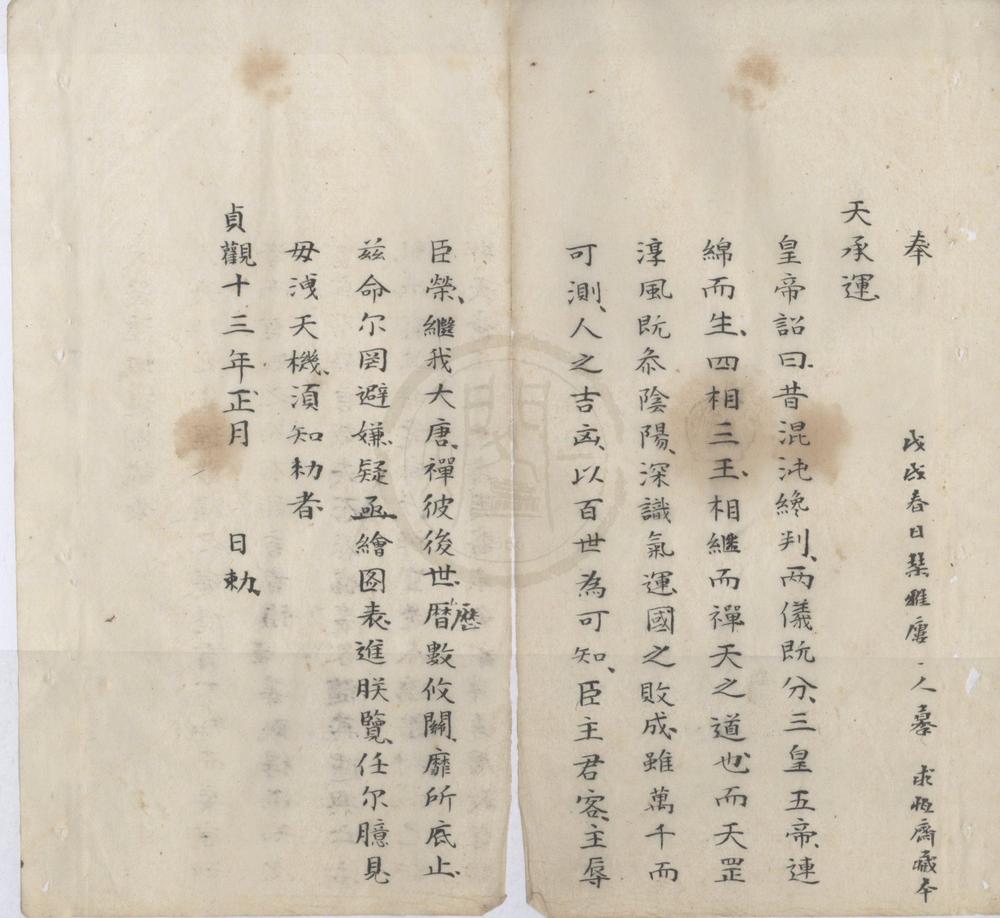 戊戌春日集雅廔一人摹 求恆齋藏本
奉
天承運
皇帝詔曰昔混沌纔判、两儀既分、三皇五帝、連
綿而生、四相三王、相繼而禪天之道也、而天罡
淳風既叅陰陽、深識氣運國之敗成、雖萬千而
可測、人之吉凶、以百世為可知、臣主君容、主辱
臣榮、繼我大唐、禪彼後世、暦歷數攸關、靡所底止、
兹命尔罔避嫌疑、亟繪图表、進朕覽、任尔臆見、
毋洩天機、須知勅者
貞觀十三年正月 日勅、